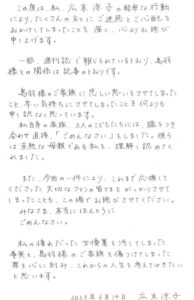 この度は私、広末涼子の軽率な行動
により、たくさんの方々にご迷惑とご心配を
おかけしてしまったことを深く、心よりお詫び
申し上げます。
一部、週刊誌で報じられているとおり、鳥羽
様との関係は記事のとおりです。
鳥羽様のご家族に悲しい思いをさせてしまった
こと、辛い気持ちにさせてしまったことを何よりも
申し訳なく思っています。
私自身の家族、3人の子どもたちには、膝をつき
合わせ直接、「ごめんなさい」をしました。彼ら
は未熟な母親である私を、理解し認めてくれ
ました。
また、今回の一件により、これまで応援して
くださった大切なファンの皆さまをがっかりさせて
しまったことも、この場でお詫びさせてください。
みなさま、本当にほんとうに
ごめんなさい。
私の憧れだったお仕事を汚してしまった
事実と、鳥羽様のご家族を傷つけてしまった
罪を心に刻み、これからの人生を考えてゆきたい
と思います。
2023年6月14日 広末涼子